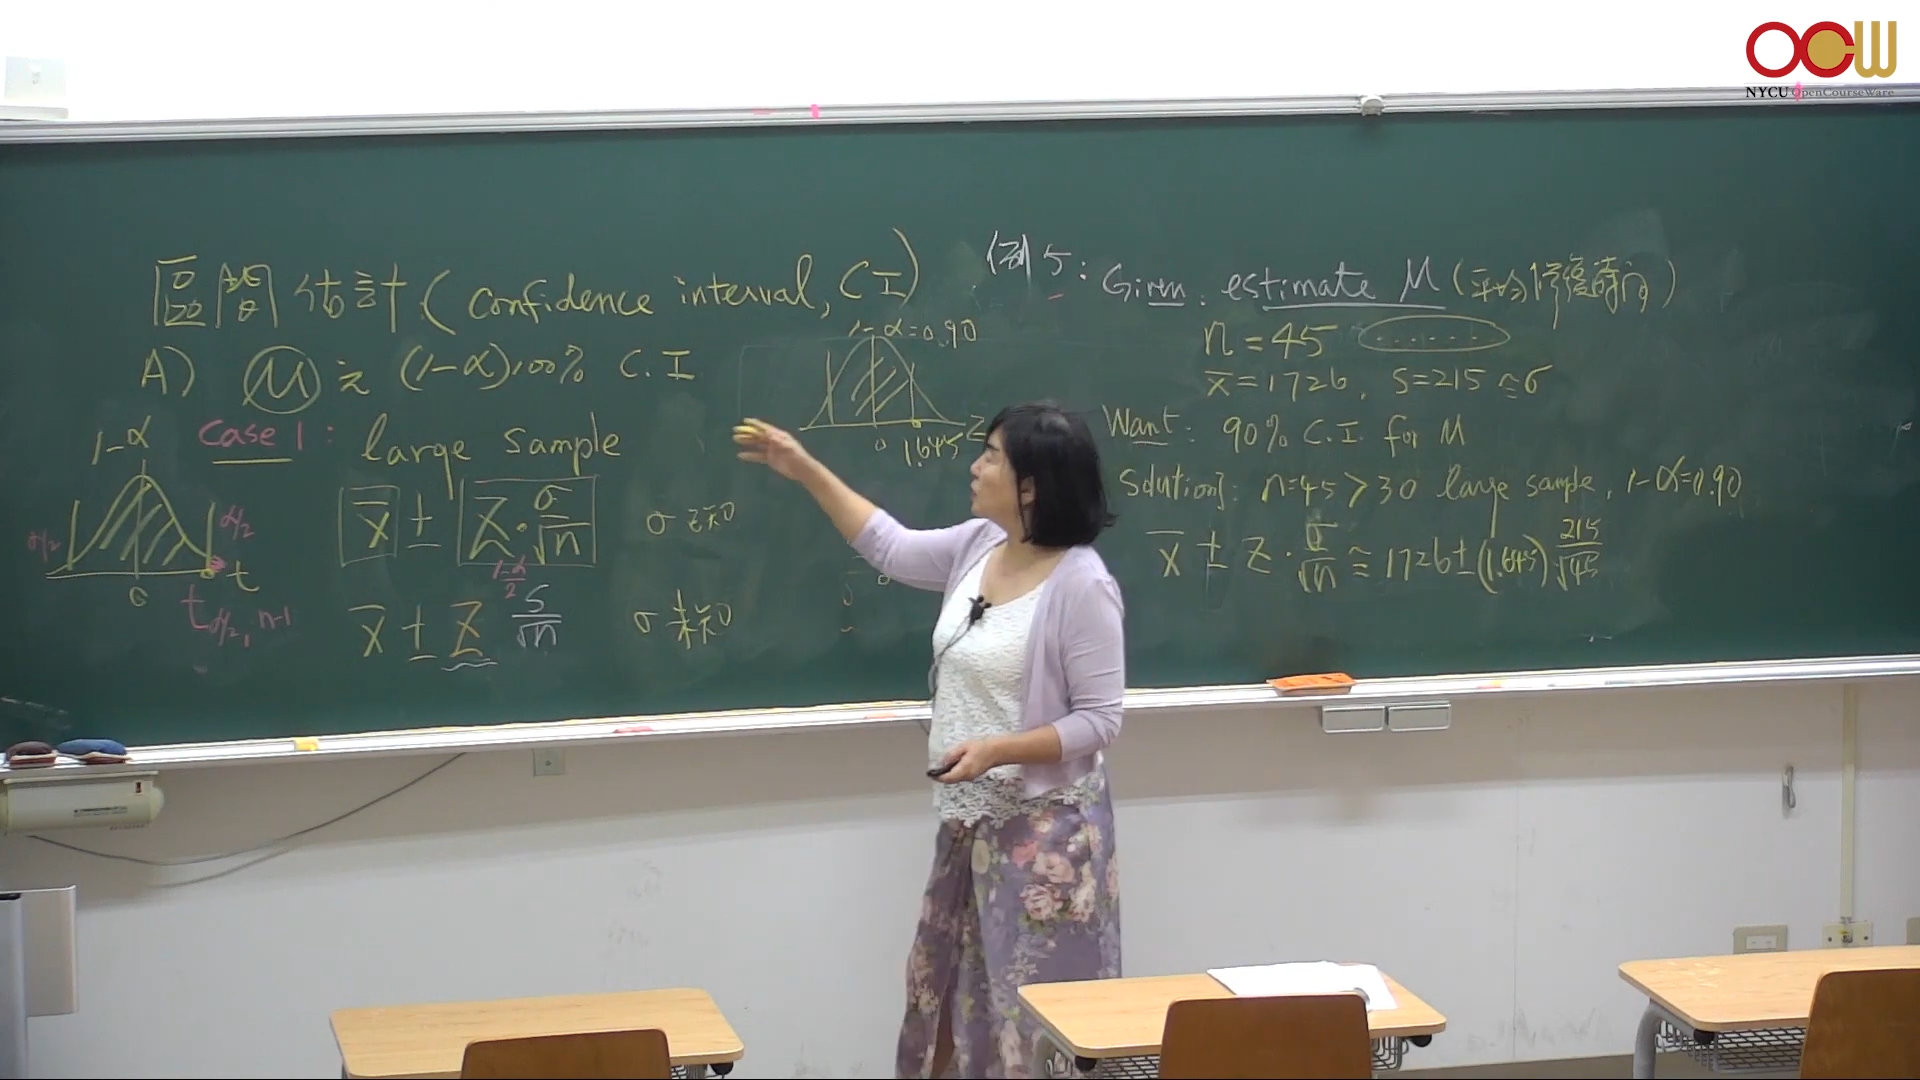 OCW
NYCU OpenCourseWare
區間估計 (Confidence interval, CI)
A) μ 之 (1-α)100% C.I
Case 1: large sample
x̄ ± Z_{1-α/2} · σ/√n σ 已知
x̄ ± Z S/√n σ 未知
1-α
α/2 α/2
0 t
t_{α/2, n-1}
1-α=0.90
0 1.645 Z
例 5: Given. estimate μ (平均修復時間)
n=45
x̄=1726, s=215 ≈σ
Want: 90% C.I. for μ
Solution]: n=45 > 30 large sample, 1-α=0.90
x̄ ± Z · σ/√n ≅ 1726 ± (1.645) 215/√45